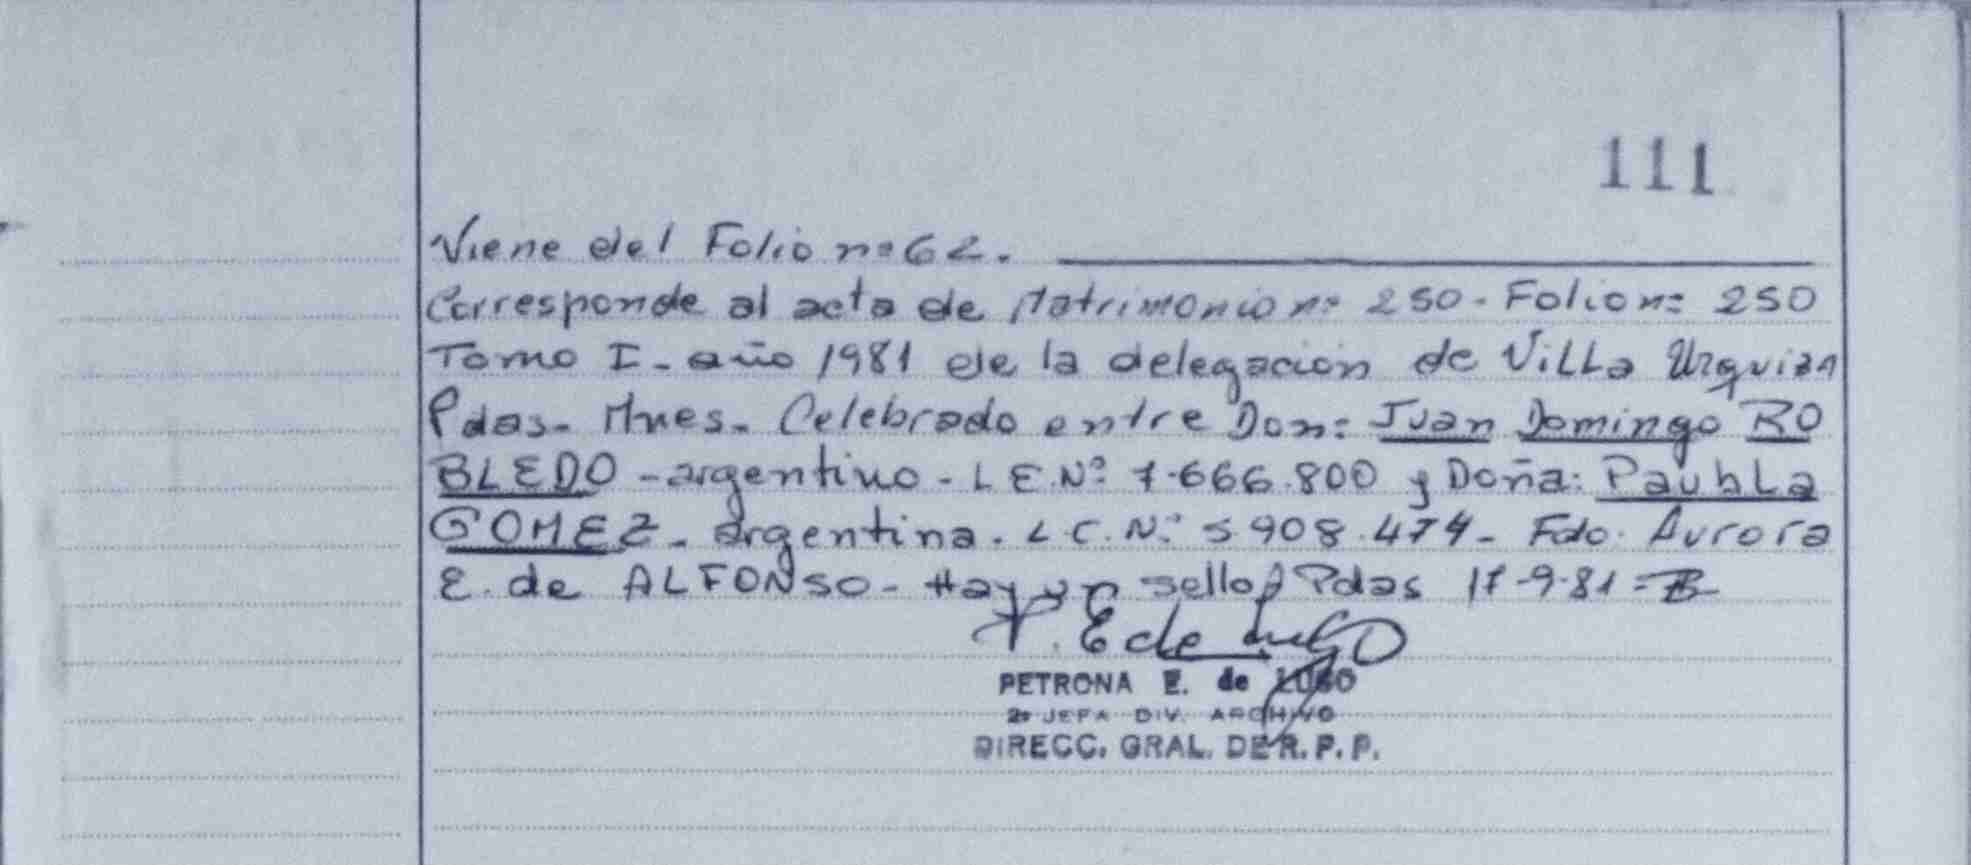 111
Viene del Folio nº 62.
Corresponde al acta de Matrimonio nº 250 - Folio nº 250
Tomo I - año 1981 de la delegación de Villa Urquiza
Pdas - Mnes - Celebrado entre Don: Juan Domingo RO
BLEDO - argentino - L E. Nº 7.666.800 y Doña:
GOMEZ - argentina. L.C. Nº 5.908.474 - Fdo. Aurora
E. de ALFONSO - Hay un sello Pdas 17-9-81 =
P. E de Lugo
PETRONA E. de LUGO
2º JEFA DIV. ARCHIVO
DIRECC. GRAL. DE R. P. P.